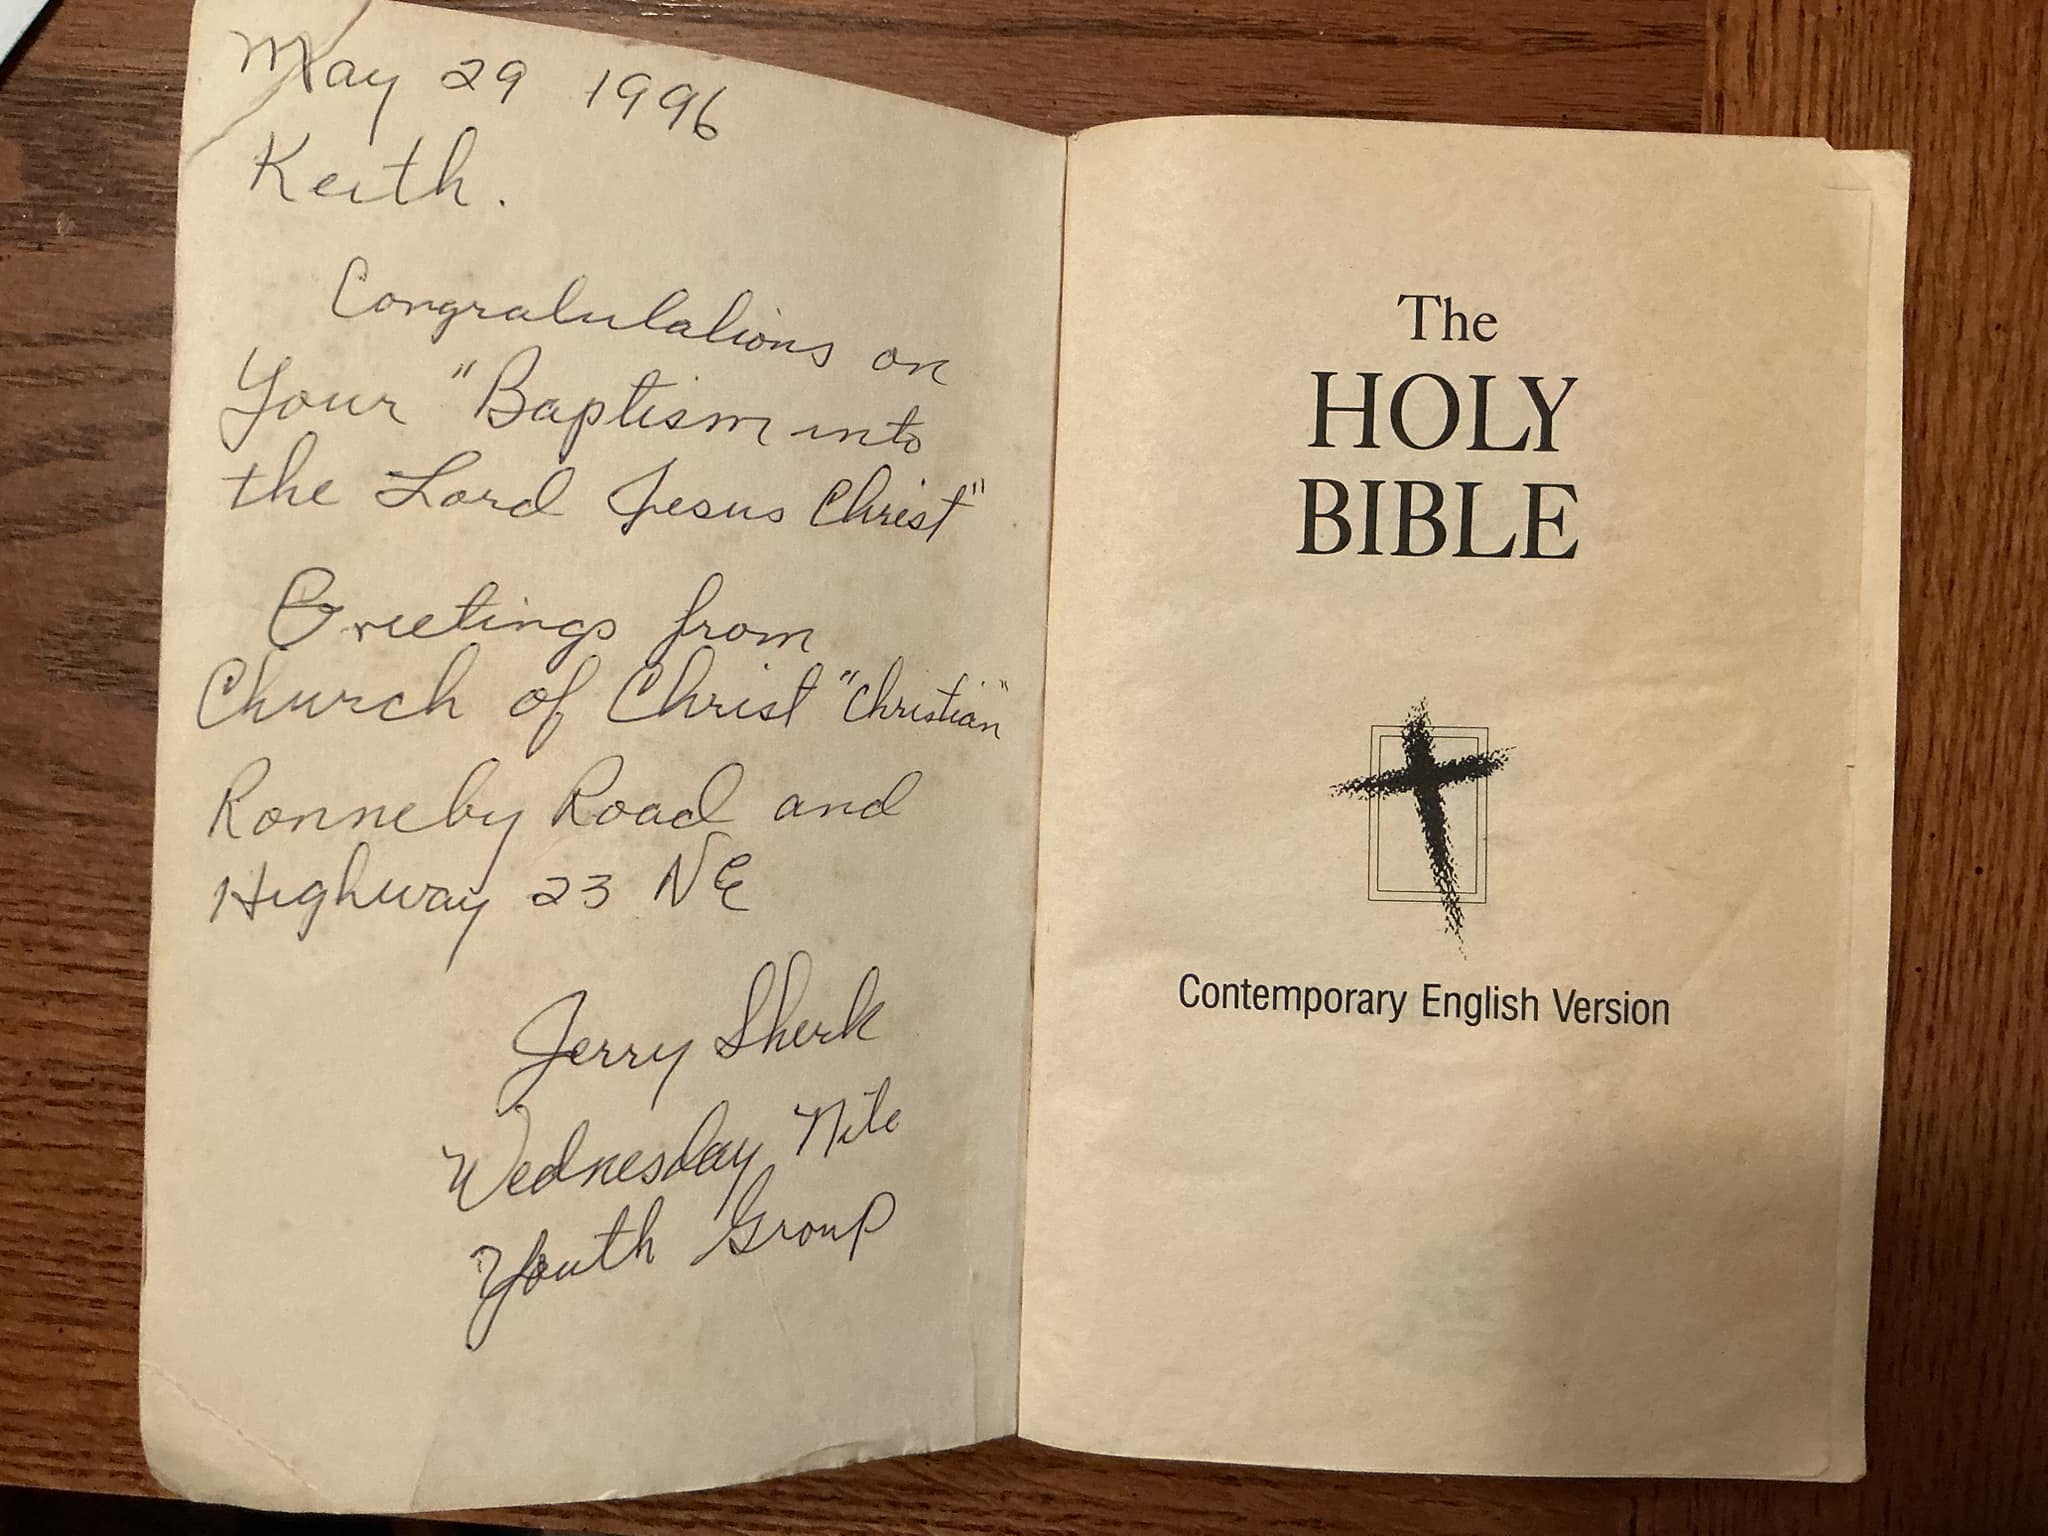 May 29 1996
Keith.
Congratulations on
Your "Baptism into
the Lord Jesus Christ"
Greetings from
Church of Christ "Christian"
Ronneby Road and
Highway 23 NE
Jerry Sherk
Wednesday Nite
Youth Group
The
HOLY
BIBLE
Contemporary English Version